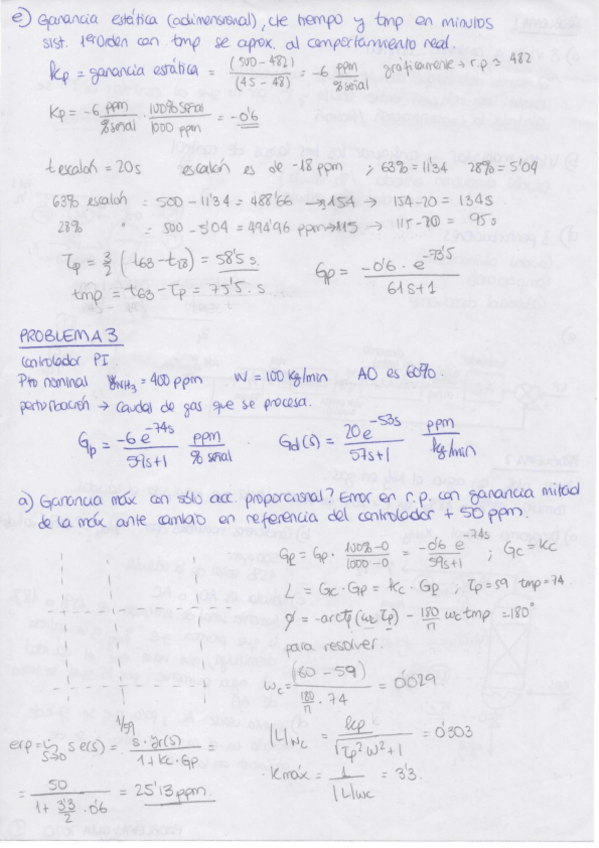 e) Ganancia estática (adimensional), cte tiempo y tmp en minutos
sist. 1er Orden con tmp se aprox. al comportamiento real.
kp = ganancia estática = (500-482) / (45-48) = -6 ppm / %señal gráficamente → r.p. ≈ 482
Kp = -6 ppm / %señal · 100% señal / 1000 ppm = -0'6
t escalón = 20s escalón es de -18 ppm ; 63% = 11'34 28% = 5'04
63% escalón = 500 - 11'34 = 488'66 → 154 → 154-20 = 134s
28% " = 500 - 5'04 = 494'96 ppm → 115 → 115-20 = 95s
τp = 3/2 (t63 - t28) = 58'5 s.
tmp = t63 - τp = 75'5 · s.
Gp = -0'6 · e^-73'5 / 61s+1
PROBLEMA 3
Controlador PI
Pto nominal yNH3 = 400 ppm W = 100 kg/min AO es 60%.
perturbación → caudal de gas que se procesa.
Gp = -6 e^-74s / 59s+1 ppm / % señal . Gd(s) = 20e^-53s / 57s+1 ppm / kg/min
a) Ganancia máx con sólo acc. proporcional? Error en r.p. con ganancia mitad
de la máx ante cambio en referencia del controlador + 50 ppm.
Gp = Gp · 100%-0 / 1000-0 = -0'6 e^-74s / 59s+1 ; Gc = Kc
L = Gc · Gp = Kc · Gp ; τp = 59 tmp = 74
φ = -arctg (ωc τp) - 180/π ωc tmp = 180°
para resolver.
ωc = (180 - 59) / 180/π · 74 = 0'029
|L|ωc = kp / √τp²ω²+1 = 0'303
· Kmáx = 1 / |L|ωc = 3'3.
erp = lim s→0 s e(s) = s · yr(s) / 1 + Kc · Gp =
= 50 / 1 + 3'3/2 · 0'6 = 25'13 ppm.